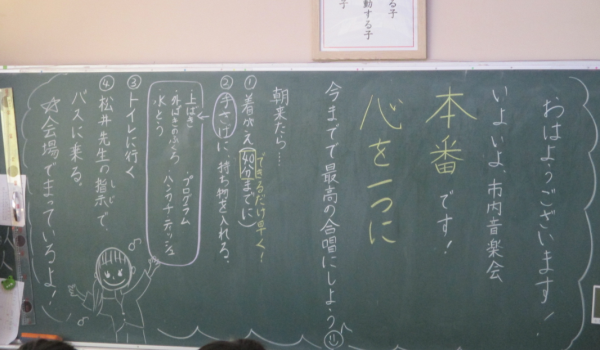 る子
動する子
子
おはようございます！
いよいよ、市内音楽会
本番です！
心を一つに
今までで最高の合唱にしよう
朝来たら…
できるだけ早く！
①着がえ(40分までに)
②手さげに、持ち物を入れる。
上ばき
・外ばきのふくろ
・水とう
・プログラム
・ハンカチ・ティッシュ
③トイレに行く
④松井先生の指示で、
しじ
バスに乗る。
☆会場で待っているよ！